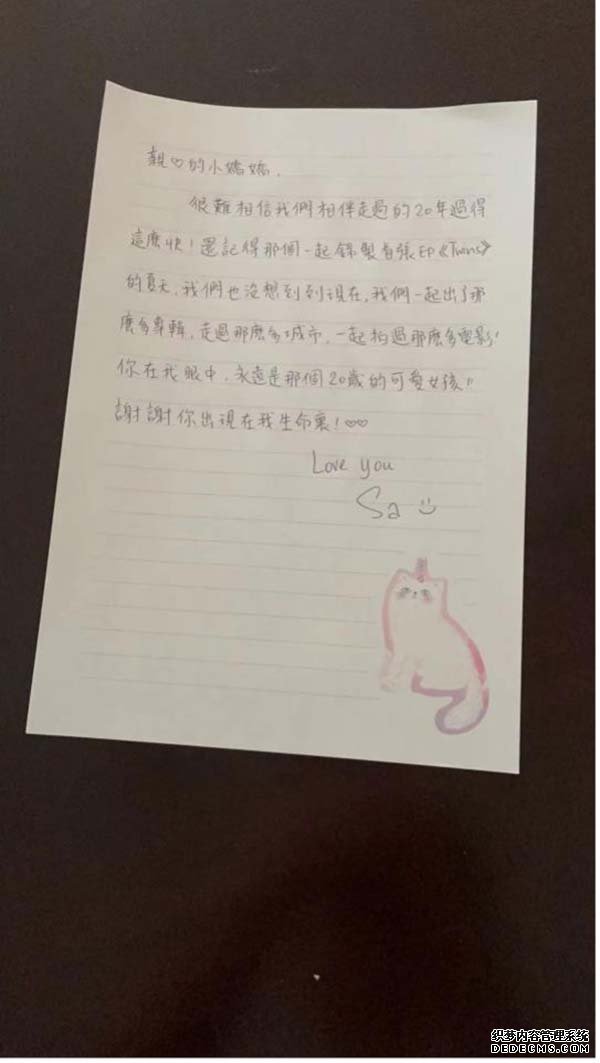 親♡的小嬌嬌,
很難相信我們相伴走過的20年過得
這麽快！還記得那個一起錄製首張EP《Twins》
的夏天,我們也沒想到到現在,我們一起出了那
麽多專輯,走過那麽多城市,一起拍過那麽多電影!
你在我眼中,永遠是那個20歲的可愛女孩!!
謝謝你出現在我生命裏！♡♡
Love you
Sa
织梦内容管理系统
DEDECMS.COM